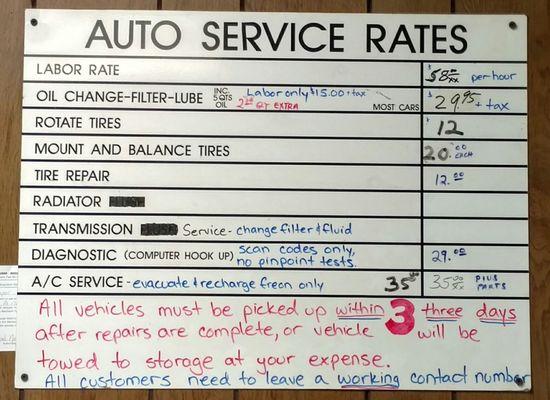 AUTO SERVICE RATES
LABOR RATE $58 00/xx per hour
OIL CHANGE-FILTER-LUBE INC. 5 QTS OIL Labor only $15.00 + tax MOST CARS $29.95 + tax
QT EXTRA
ROTATE TIRES $12
MOUNT AND BALANCE TIRES 20.00 EACH
TIRE REPAIR 12.00
RADIATOR
TRANSMISSION Service - change filter & fluid
DIAGNOSTIC (COMPUTER HOOK UP) scan codes only, no pinpoint tests. 29.00
A/C SERVICE - evacuate & recharge freon only 35 00 35 00/xx PLUS PARTS
All vehicles must be picked up within 3 three days
after repairs are complete, or vehicle will be
towed to storage at your expense.
All customers need to leave a working contact number